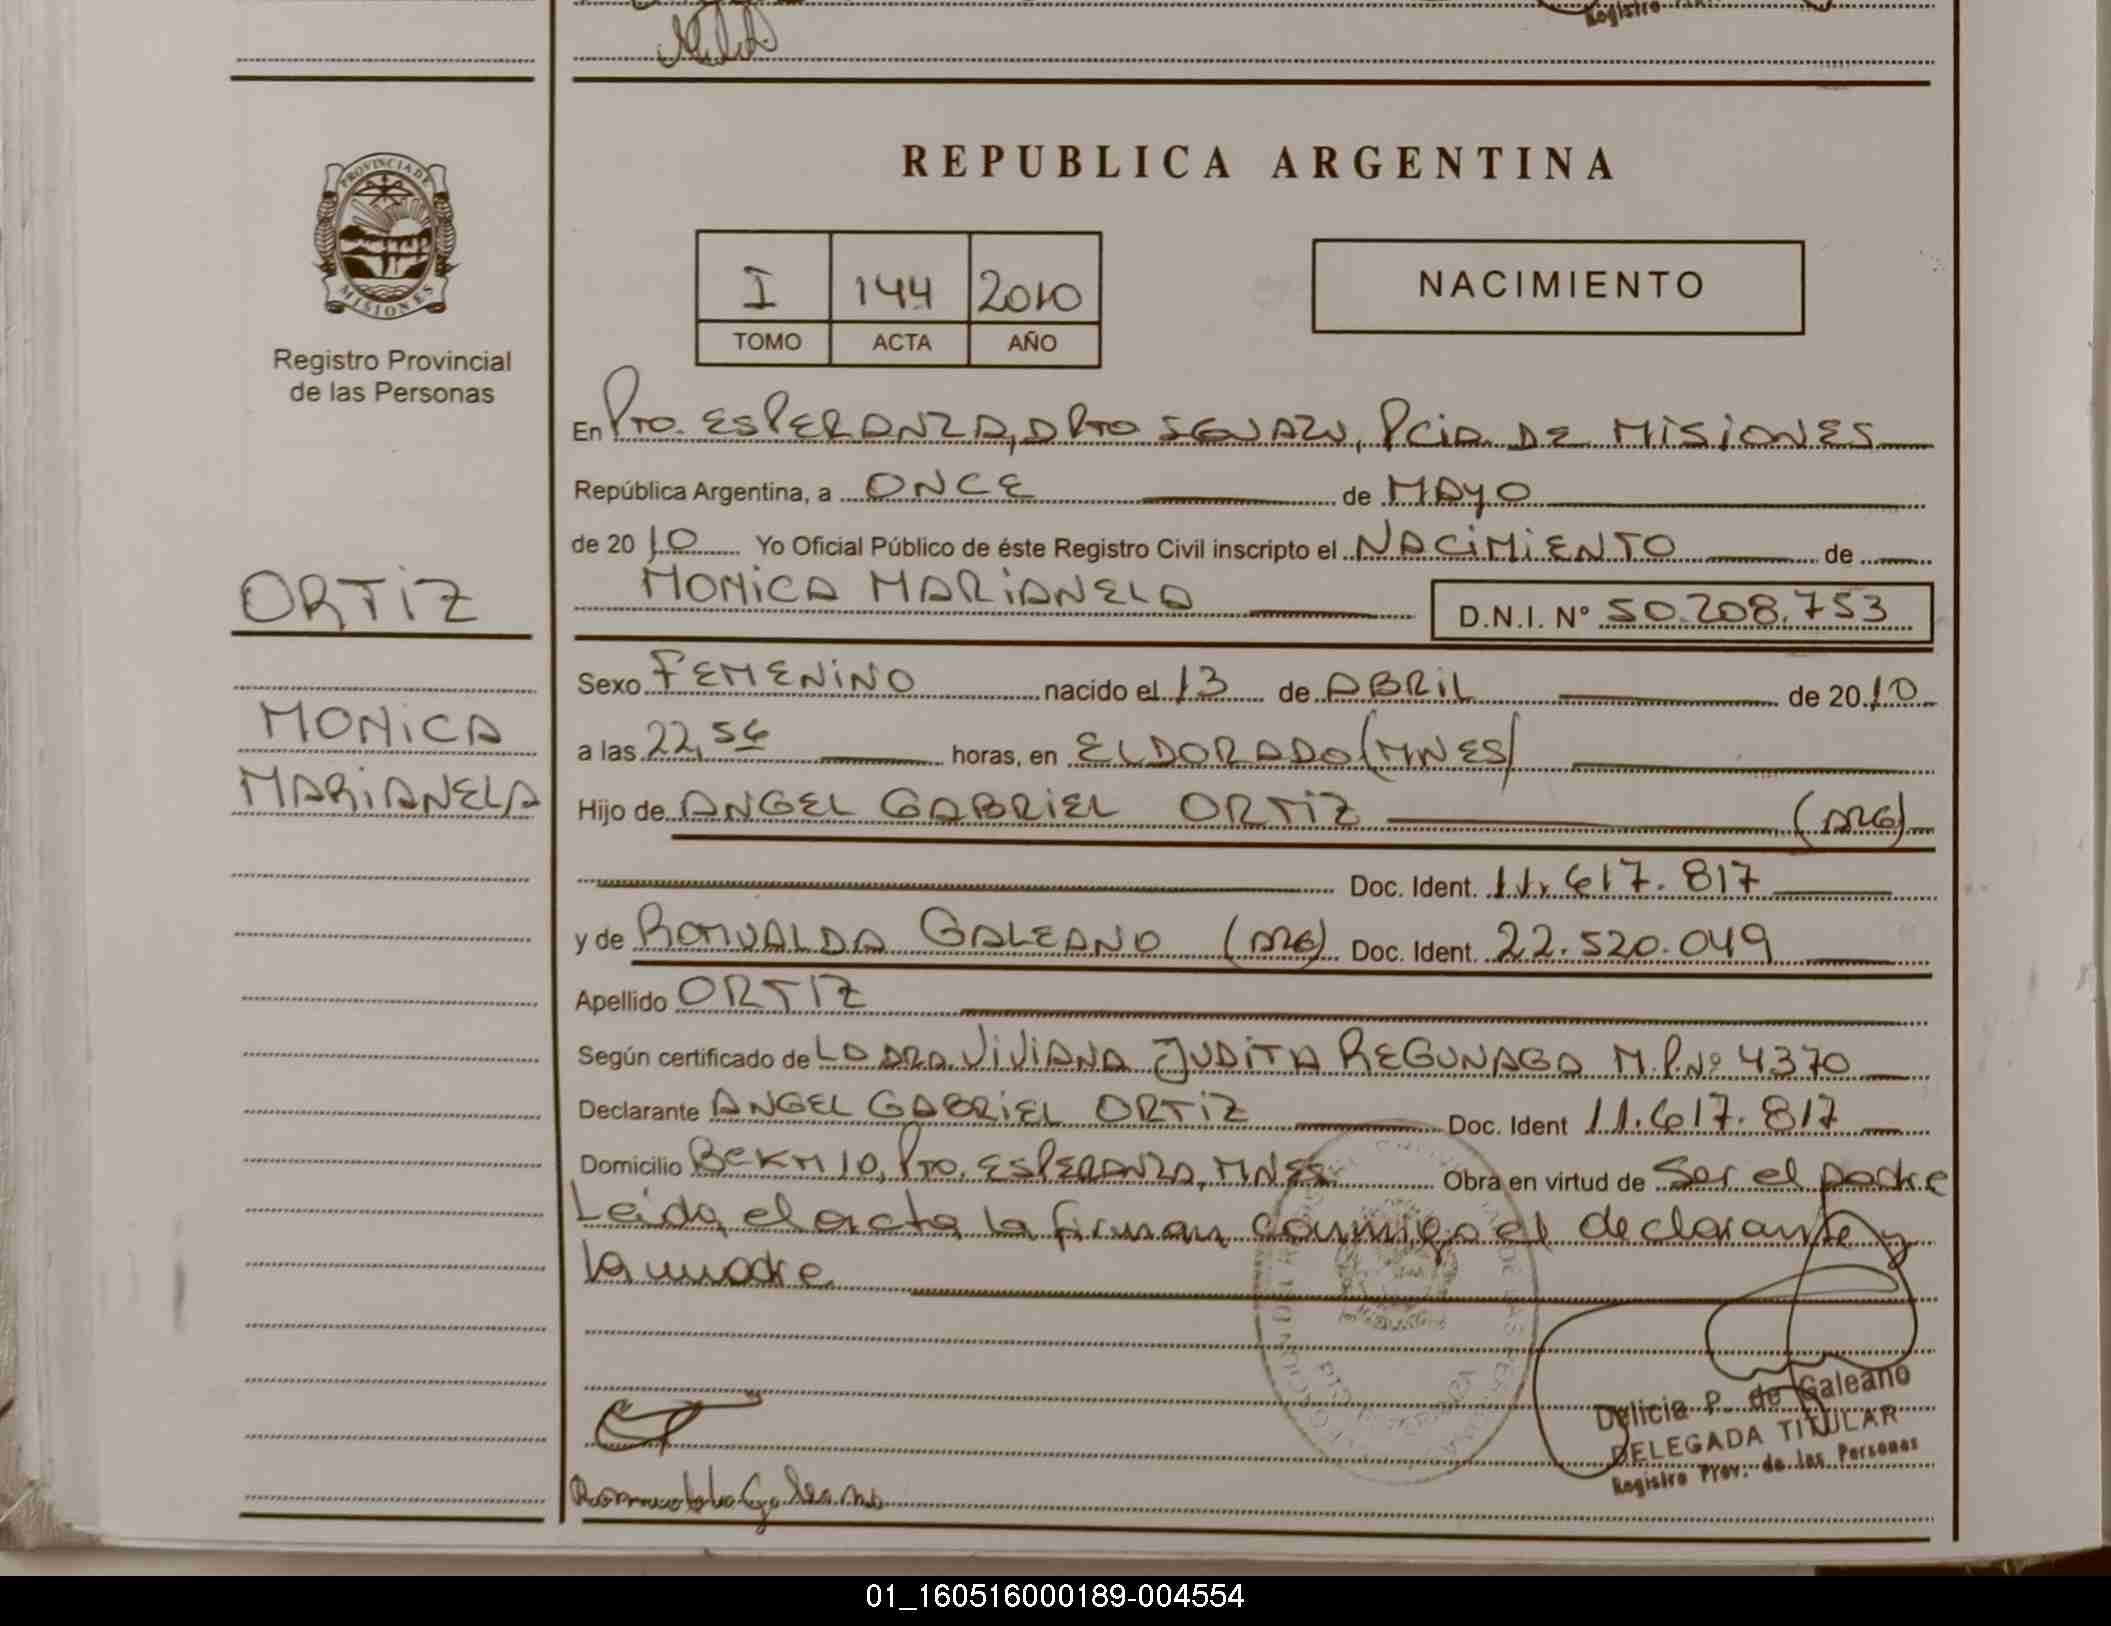 Registro
REPUBLICA ARGENTINA
PROVINCIA DE
MISIONES
Registro Provincial
de las Personas
I 144 2010
TOMO ACTA AÑO
NACIMIENTO
En Pto. ESPERANZA, DPto IGUAZU, PCIA DE MISIONES
República Argentina, a ONCE de MAYO
de 20 10 Yo Oficial Público de éste Registro Civil inscripto el NACIMIENTO de
MONICA MARIANELA D.N.I. Nº 50.208.753
ORTIZ
MONICA
MARIANELA
Sexo FEMENINO nacido el 13 de ABRIL de 20 10
a las 22,56 horas, en ELDORADO (MNES)
Hijo de ANGEL GABRIEL ORTIZ (ARG)
Doc. Ident. 11.617.817
y de ROMUALDA GALEANO (ARG) Doc. Ident. 22.520.049
Apellido ORTIZ
Según certificado de LA DRA. VIVIANA JUDITA REGUNAGA M.P.Nº 4370
Declarante ANGEL GABRIEL ORTIZ Doc. Ident 11.617.817
Domicilio Bº KM 10, Pto. ESPERANZA, MNES Obra en virtud de Ser el padre
Leida el acta la firman conmigo el declarante y
la madre
Delicia P. de Galeano
DELEGADA TITULAR
Registro Prov. de las Personas
Romualda Galeano
01_160516000189-004554